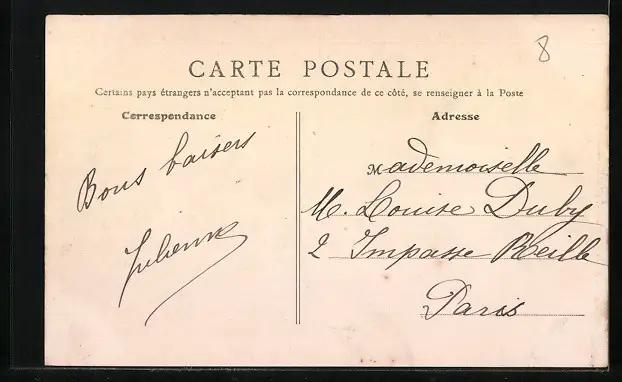 8
CARTE POSTALE
Certains pays étrangers n'acceptant pas la correspondance de ce côté, se renseigner à la Poste
Correspondance
Adresse
Bons baisers
Julienne
Mademoiselle
M. Louise Duby
2 Impasse Reille
Paris